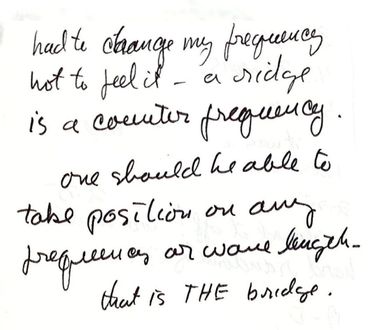 had to change my frequency
not to feel it - a ridge
is a counter frequency.
one should be able to
take position on any
frequency or wave length -
that is THE bridge.